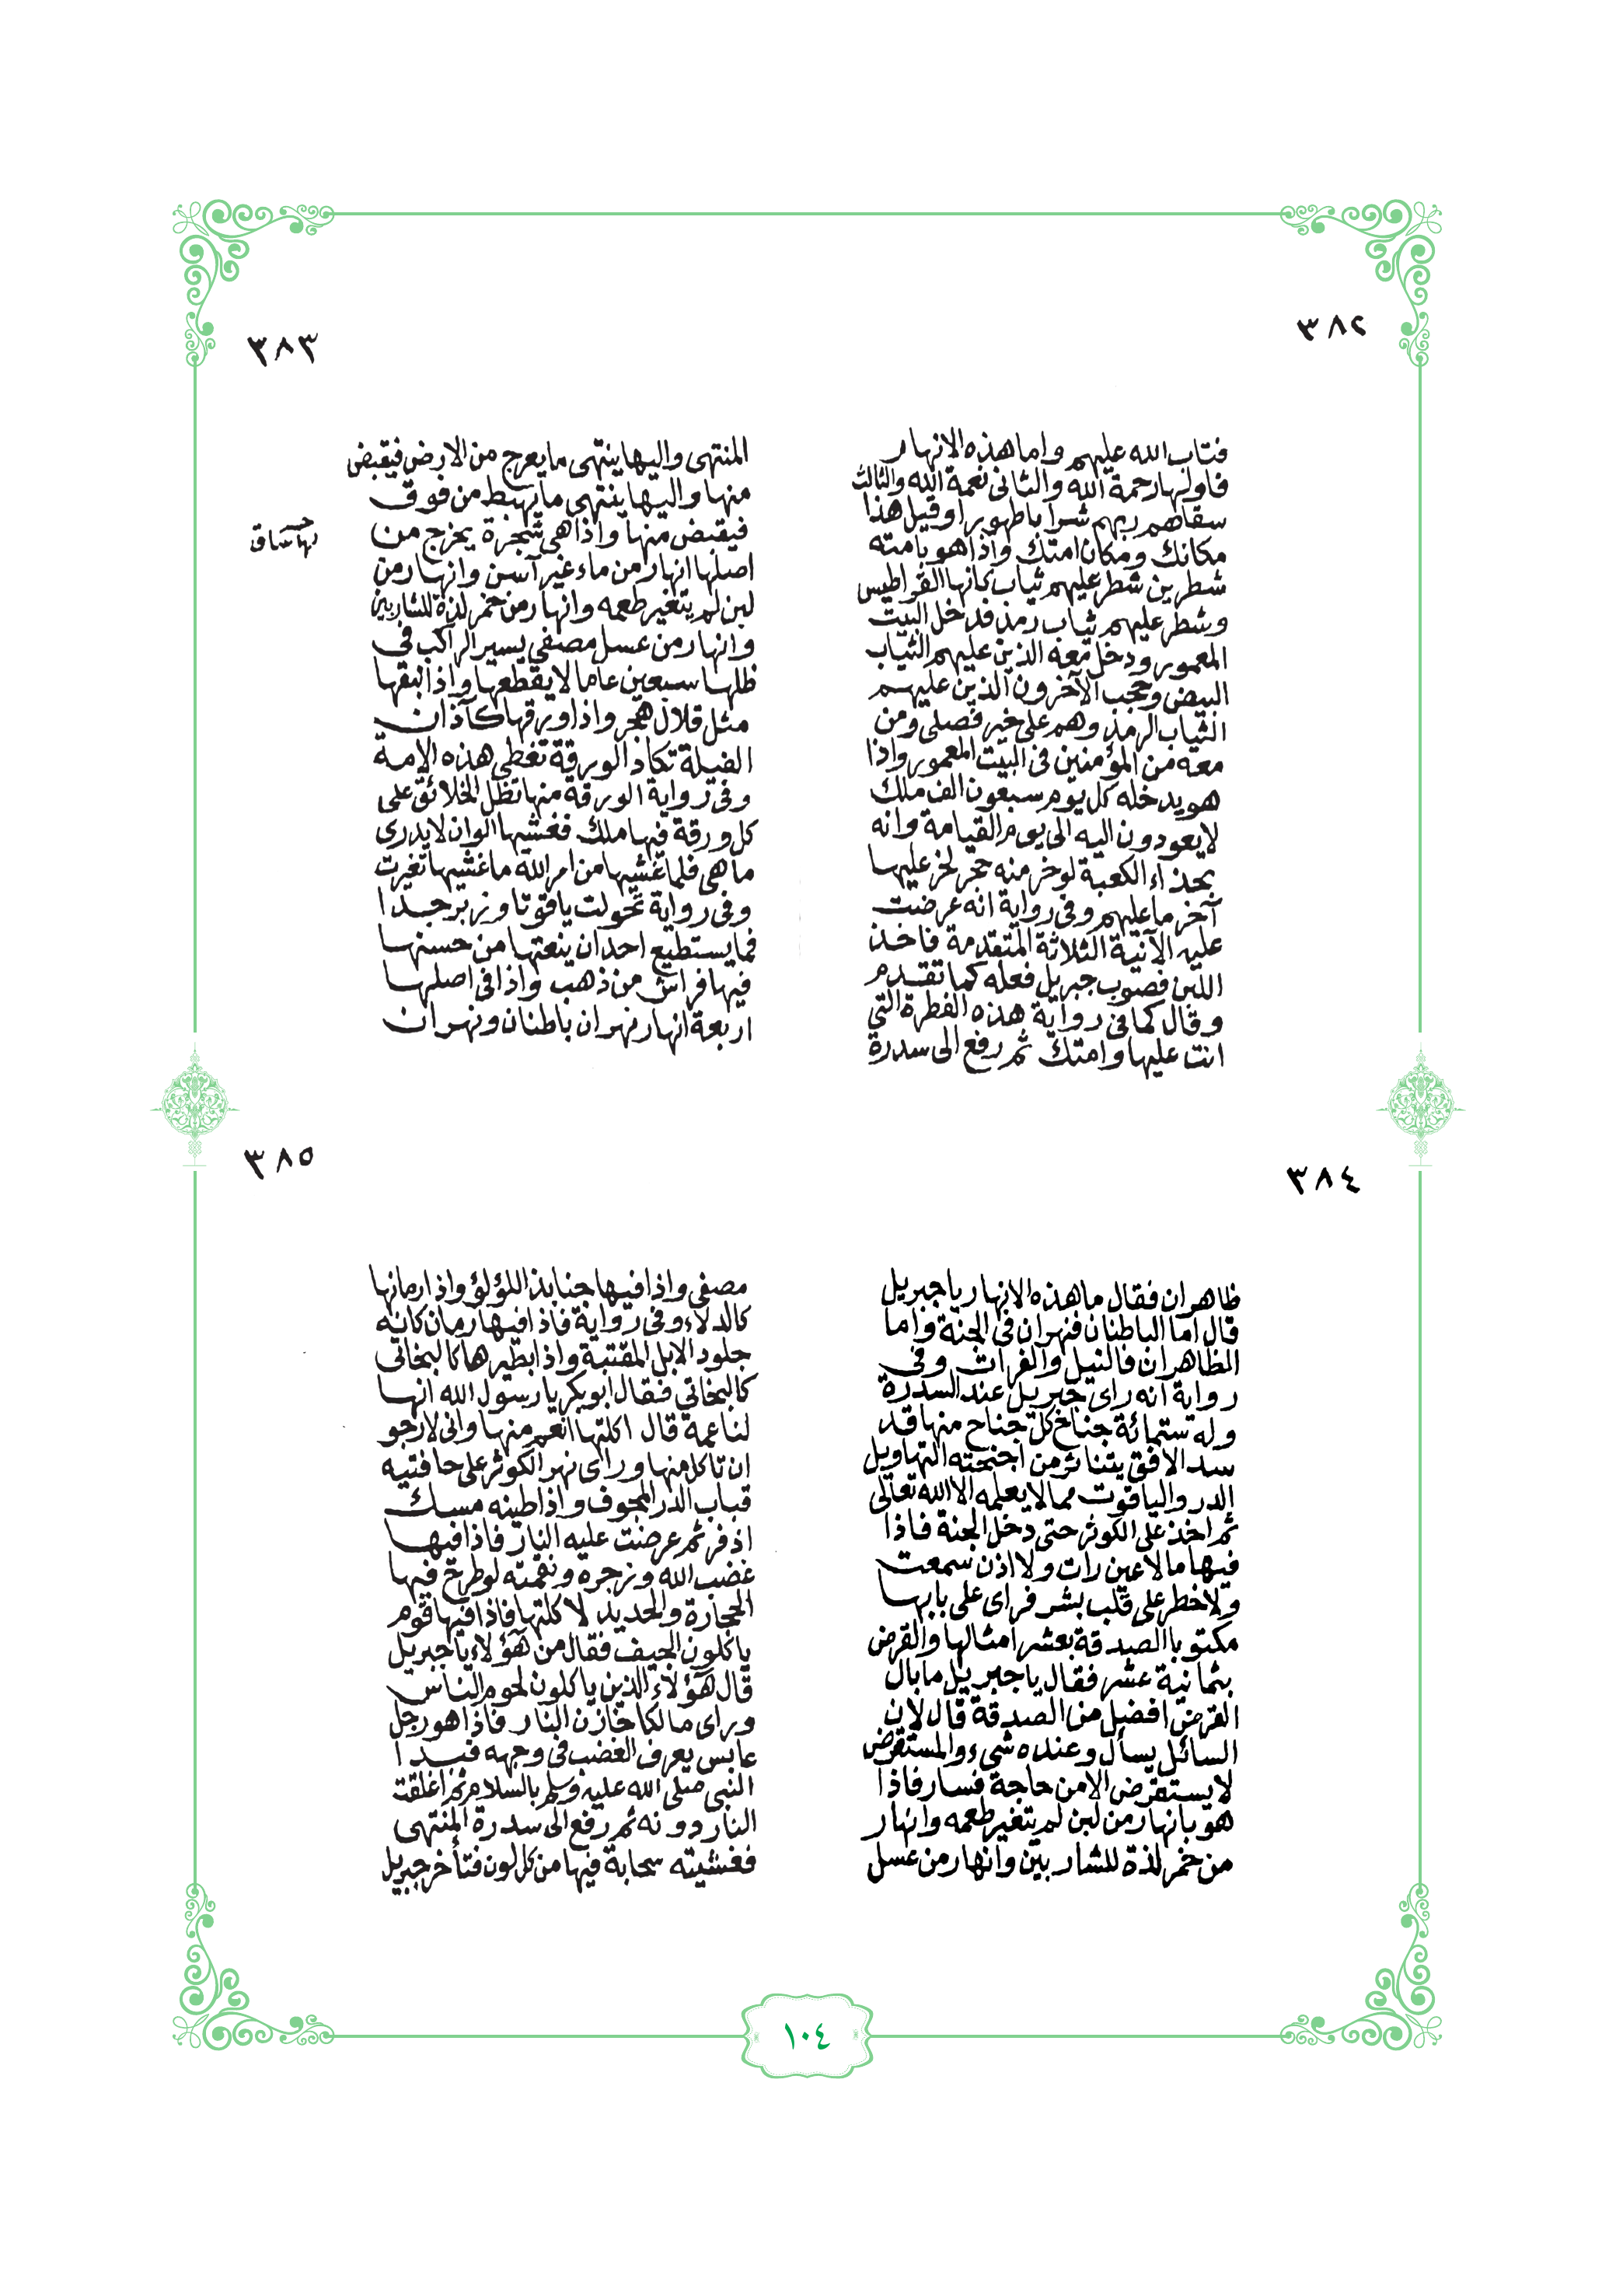 ٣٨٢
فتاب الله عليهم واما هذه الانهار
فاولها رحمة الله والثانى نعمة الله والثالث
سقاهم ربهم شرابا طهورا وقيل هذا
مكانك ومكان امتك واذا هو بامته
شطرين شطر عليهم ثياب كانها القراطيس
وشطر عليهم ثياب رمد فدخل البيت
المعمور ودخل معه الذين عليهم الثياب
البيض وحجب الآخرون الذين عليهم
الثياب الرمد وهم على خير فصلى ومن
معه من المؤمنين فى البيت المعمور واذا
هو يدخله كل يوم سبعون الف ملك
لا يعودون اليه الى يوم القيامة وانه
بحذاء الكعبة لو خر منه حجر لخر عليها
آخر ما عليهم وفى رواية انه عرضت
عليه الآنية الثلاثة المتقدمة فاخذ
اللبن فصوب جبريل فعله كما تقدم
وقال كما فى رواية هذه الفطرة التي
انت عليها وامتك ثم رفع الى سدرة
٣٨٣
المنتهى واليها ينتهى ما يعرج من الارض فيقبض
منها واليها ينتهى ما يهبط من فوق
فيقبض منها واذا هى شجرة يخرج من
اصلها انهار من ماء غير آسن وانهار من
لبن لم يتغير طعمه وانهار من خمر لذة للشاربين
وانهار من عسل مصفى يسير الراكب فى
ظلها سبعين عاما لا يقطعها واذا نبقها
مثل قلال هجر واذا ورقها كآذان
الفيلة تكاد الورقة تغطى هذه الامة
وفى رواية الورقة منها تظل الخلائق على
كل ورقة فيها ملك فغشيها الوان لا يدرى
ما هى فلما غشيها من امر الله ما غشيها تغيرت
وفى رواية تحولت ياقوتا وزبرجدا
فما يستطيع احد ان ينعتها من حسنها
فيها فراش من ذهب واذا فى اصلها
اربعة انهار نهران باطنان ونهران
٣٨٤
ظاهران فقال ما هذه الانهار يا جبريل
قال اما الباطنان فنهران فى الجنة واما
الظاهران فالنيل والفرات وفى
رواية انه راى جبريل عند السدرة
وله ستمائة جناح كل جناح منها قد
سد الافق يتناثر من اجنحته التهاويل
الدر والياقوت مما لا يعلمه الا الله تعالى
ثم اخذ على الكوثر حتى دخل الجنة فاذا
فيها ما لا عين رات ولا اذن سمعت
ولا خطر على قلب بشر فراى على بابها
مكتوبا الصدقة بعشر امثالها والقرض
بثمانية عشر فقال يا جبريل ما بال
القرض افضل من الصدقة قال لان
السائل يسأل وعنده شىء والمستقرض
لا يستقرض الا من حاجة فسار فاذا
هو بانهار من لبن لم يتغير طعمه وانهار
من خمر لذة للشاربين وانهار من عسل
٣٨٥
مصفى واذا فيها جنابذ اللؤلؤ واذا رمانها
كالدلاء وفى رواية فاذا فيها رمان كانه
جلود الابل المقتبة واذا بطيرها كالبخاتى
كالبخاتي فقال ابو بكر يا رسول الله انها
لناعمة قال اكلتها انعم منها وانى لارجو
ان تاكل منها وراى نهر الكوثر على حافتيه
قباب الدر المجوف واذا طينه مسك
اذفر ثم عرضت عليه النار فاذا فيها
غضب الله وزجره ونقمته لو طرح فيها
الحجارة والحديد لاكلتها فاذا فيها قوم
ياكلون الجيف فقال من هؤلاء يا جبريل
قال هؤلاء الذين ياكلون لحوم الناس
وراى مالكا خازن النار فاذا هو رجل
عابس يعرف الغضب فى وجهه فبدا
النبى صلى الله عليه وسلم بالسلام ثم اغلقت
النار دونه ثم رفع الى سدرة المنتهى
فغشيته سحابة فيها من كل لون فتأخر جبريل
١٠٤